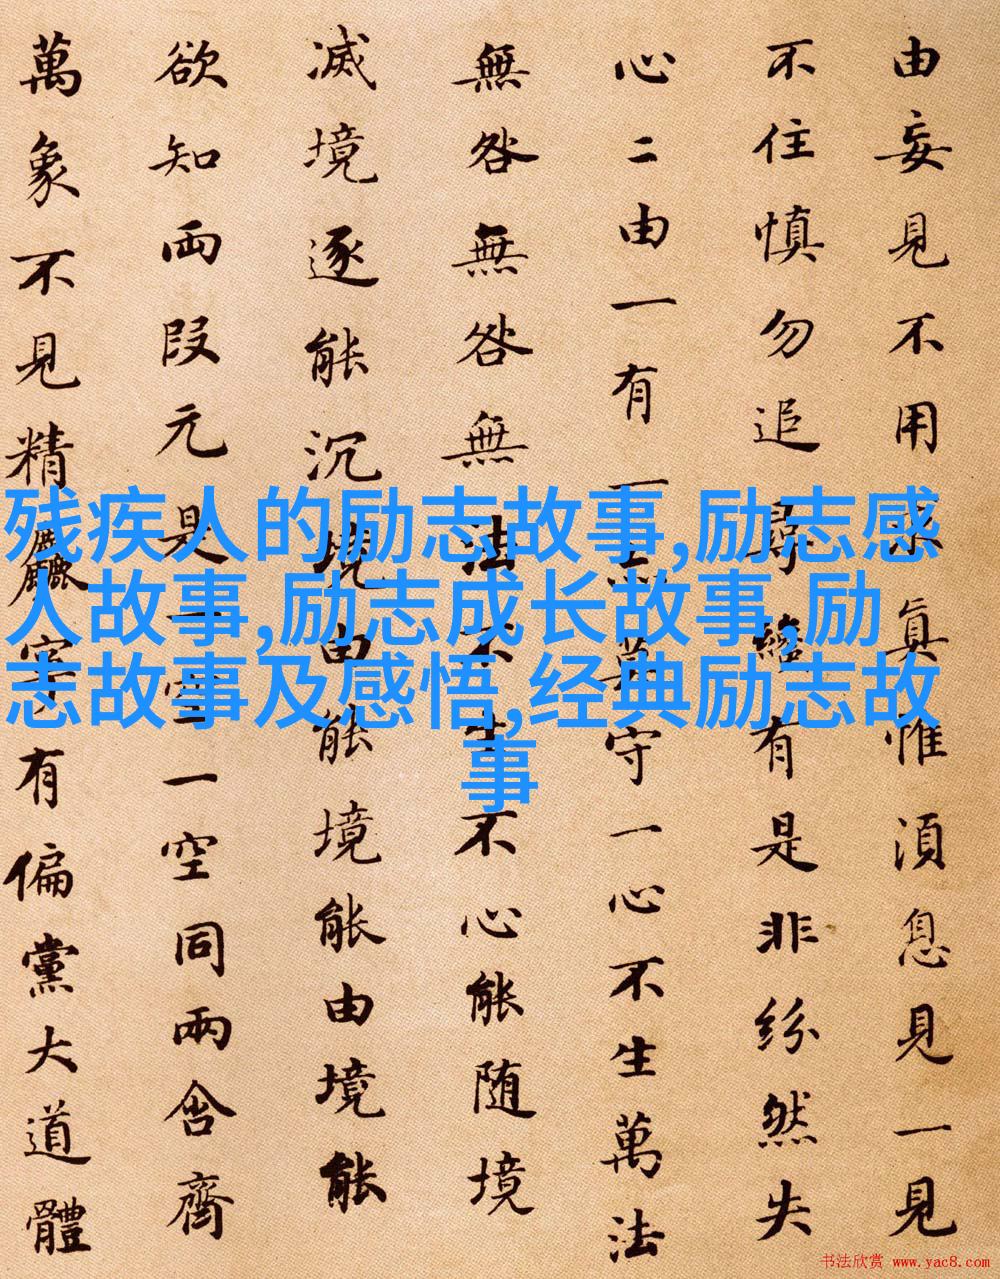 由妄見不用求眞惟湏息見一見
不住慎勿追尋纔有是非紛然失
心二由一有一亦莫守一心不生萬法
無咎無咎無法不生不心能随境
滅境逐能沉境由能境能由境能
欲知両段元是一空一空同兩含齊
萬象不見精寧有偏黨大道體
残疾人的励志故事,励志感
人故事,励志成长故事,励
志故事及感悟,经典励志故
事
书法欣赏 www.yac8.com